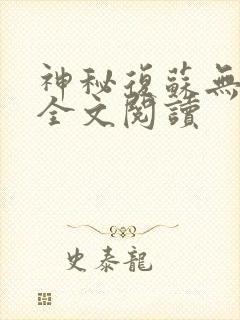 神秘復蘇無
全文閱讀
史泰龍